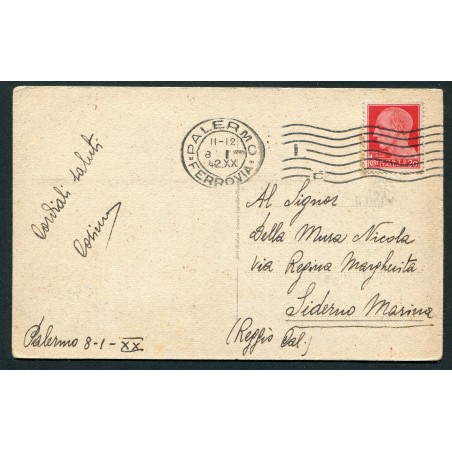 Cordiali saluti
Palermo 8-1-XX
PALERMO
11-12
8 1
42.XX
FERROVIA
Al Signor
Della Mura Nicola
Via Regina Margherita
Siderno Marina
(Reggio Cal.)